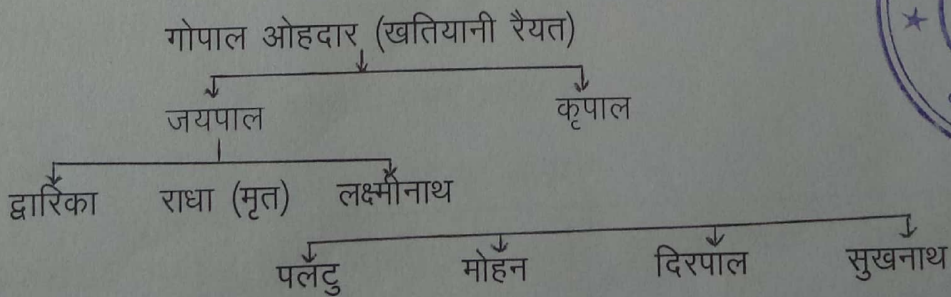 गोपाल ओहदार (खतियानी रैयत)
जयपाल कृपाल
द्वारिका राधा (मृत) लक्ष्मीनाथ
पलटु मोहन दिरपाल सुखनाथ